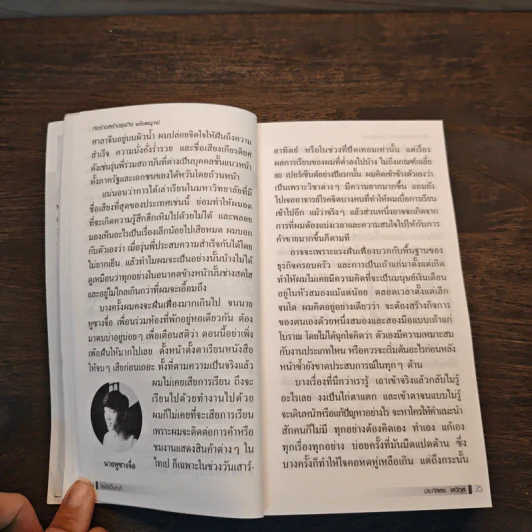 ศาลาจีนอยู่บนผิวน้ำ ผมปล่อยจิตใจให้ฝันถึงความ
สำเร็จ ความมั่งคั่งร่ำรวย และชื่อเสียงเกียรติยศ
ดังเช่นรุ่นพี่ร่วมสถาบันที่ต่างเป็นบุคคลชั้นแนวหน้า
ทั้งภาครัฐและเอกชนของไต้หวันโดยถ้วนหน้า
แน่นอนว่าการได้เล่าเรียนในมหาวิทยาลัยที่มี
ชื่อเสียงที่สุดของประเทศเช่นนี้ ย่อมทำให้ผมอด
ที่จะเกิดความรู้สึกฮึกเหิมไปด้วยไม่ได้ และพลอย
มองเห็นอะไรเป็นเรื่องเล็กน้อยไปเสียหมด ผมบอก
กับตัวเองว่า เมื่อรุ่นพี่ประสบความสำเร็จกันได้โดย
ไม่ยากเย็น แล้วทำไมผมจะเป็นอย่างนั้นบ้างไม่ได้
ดูเหมือนว่าทุกอย่างในอนาคตข้างหน้านั้นช่างสดใส
และอยู่ไม่ไกลเกินกว่าที่ผมจะเอื้อมถึง
บางครั้งผมคงจะฝันเฟื่องมากเกินไป จนนาย
หูชางจื่อ เพื่อนร่วมห้องที่พักอยู่หอเดียวกัน ต้อง
มาตบบ่าอยู่บ่อยๆ เพื่อเตือนสติว่า ตอนนี้อย่าเพิ่ง
เพ้อฝันให้มากไปเลย ตั้งหน้าตั้งตาเรียนหนังสือ
ให้จบๆ เสียก่อนเถอะ ทั้งที่ตามความเป็นจริงแล้ว
ผมไม่เคยเสียการเรียน ถึงจะ
เรียนไปด้วยทำงานไปด้วย
ผมก็ไม่เคยที่จะเสียการเรียน
เพราะผมจะติดต่อการค้าหรือ
ชมงานแสดงสินค้าต่างๆ ใน
ไทเป ก็เฉพาะในช่วงวันเสาร์-
นายหูชางจื่อ
อาทิตย์ หรือในช่วงที่ปิดเทอมเท่านั้น แต่เรื่อง
ผลการเรียนของผมที่ต่ำลงไปบ้าง ไม่ถึงเกณฑ์เฉลี่ย
๘๐ เปอร์เซ็นต์อย่างปีแรกนั้น ผมคิดเข้าข้างตัวเองว่า
เป็นเพราะวิชาต่างๆ มีความยากมากขึ้น แถมยัง
ไปเจออาจารย์โรคจิตบางคนที่ทำให้ผมเบื่อการเรียน
เข้าไปอีก แม้ว่าจริงๆ แล้วส่วนหนึ่งอาจจะเกิดจาก
การที่ผมต้องแบ่งเวลาและความสนใจไปให้กับการ
ค้าขายมากขึ้นก็ตามที
อาจจะเพราะแรงฝันเฟื่องบวกกับพื้นฐานของ
ธุรกิจครอบครัว และการเป็นเถ้าแก่มาตั้งแต่เกิด
ทำให้ผมไม่เคยมีความคิดที่จะเป็นมนุษย์เงินเดือน
อยู่ในหัวสมองแม้แต่น้อย ตลอดเวลาตั้งแต่เล็ก
จนโต ผมคิดอยู่อย่างเดียวว่า จะต้องสร้างกิจการ
ของตนเองด้วยหนึ่งสมองและสองมือแบบเถ้าแก่
โบราณ โดยไม่ได้ฉุกใจคิดว่า ตัวเองมีความเหมาะสม
กับงานประเภทไหน หรือควรจะเริ่มต้นอะไรก่อนหลัง
หน้าซ้ำยังขาดประสบการณ์ในทุกๆ ด้าน
บางเรื่องที่นึกว่าเรารู้ เอาเข้าจริงแล้วกลับไม่รู้
อะไรเลย งงเป็นไก่ตาแตก และเข้าตาจนแบบไม่รู้
จะเดินหน้าหรือแก้ปัญหาอย่างไร จะหาใครให้คำแนะนำ
สักคนก็ไม่มี ทุกอย่างต้องคิดเอง ทำเอง แก้เอง
ทุกเรื่องทุกอย่าง บ่อยครั้งที่มันมืดแปดด้าน ซึ่ง
บางครั้งก็ทำให้ใจคอหดหู่เหลือเกิน แต่ถึงกระนั้น
35